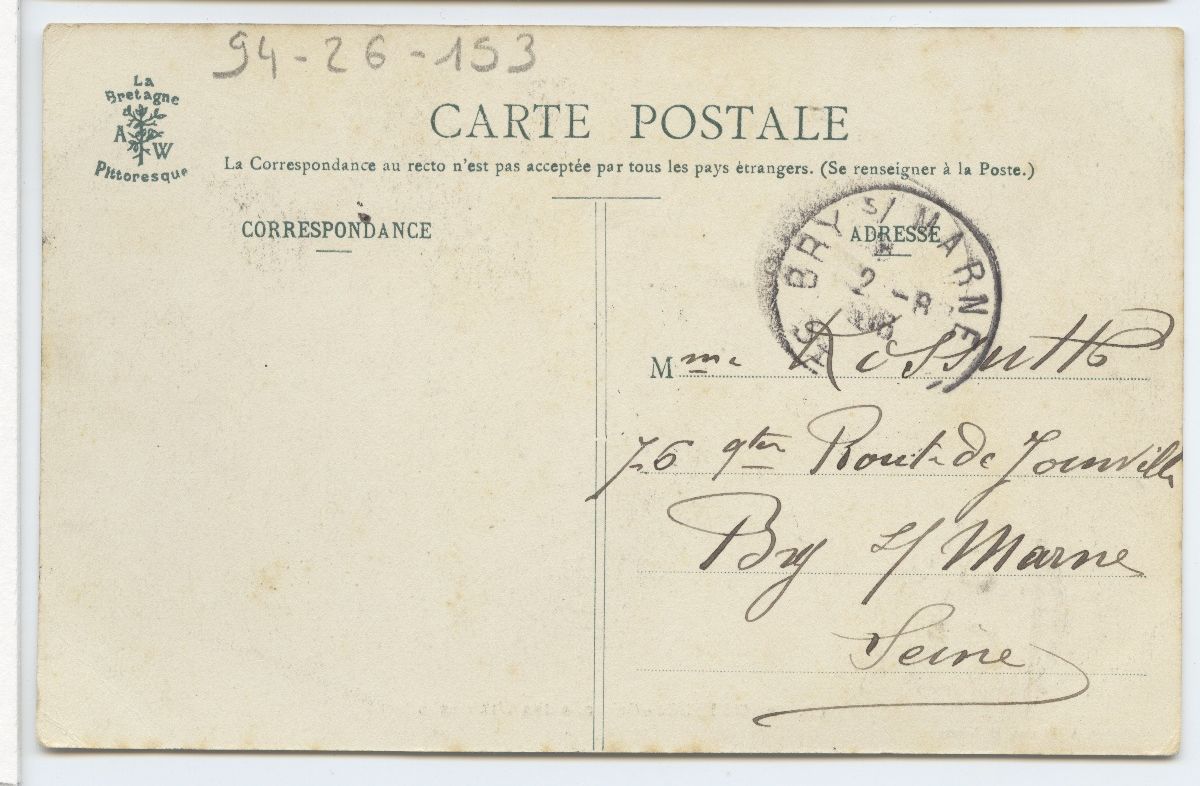 94-26-153
La
Bretagne
A W
Pittoresque
CARTE POSTALE
La Correspondance au recto n'est pas acceptée par tous les pays étrangers. (Se renseigner à la Poste.)
CORRESPONDANCE
ADRESSE
BRY S/ MARNE
2 -8
Mme
76 qter Route de Joinville
Bry s/ Marne
Seine